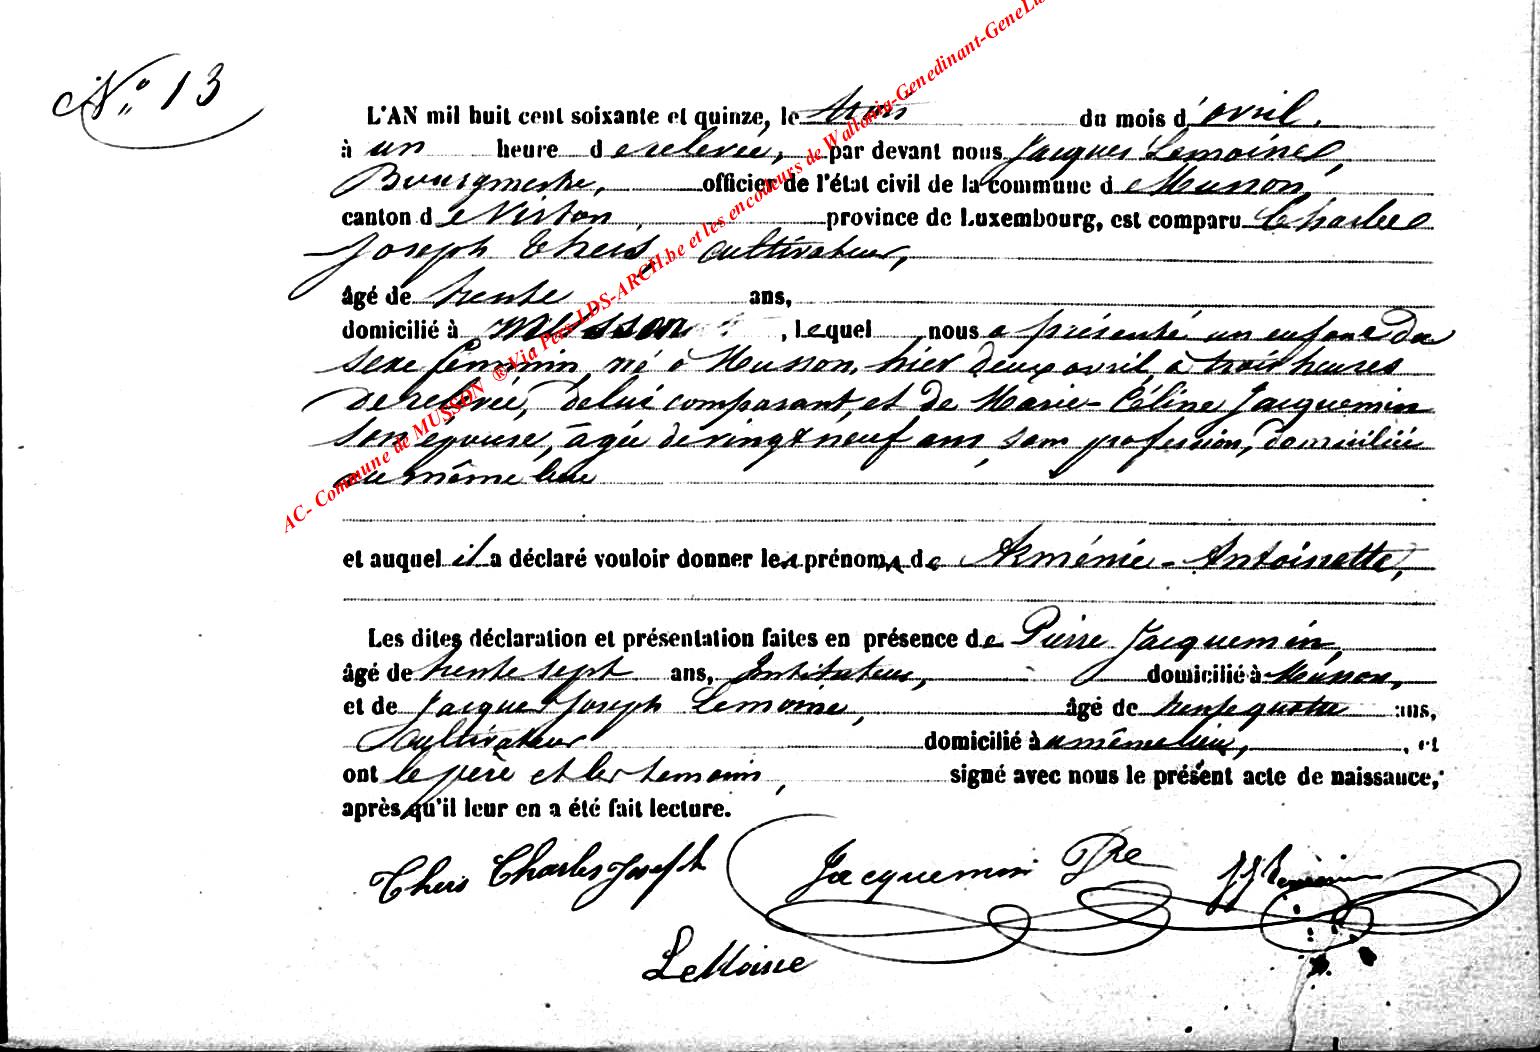 N° 13
L'AN mil huit cent soixante et quinze, le trois du mois d'avril,
à un heure de relevée, par devant nous Jacques Lemoine,
Bourgmestre, officier de l'état civil de la commune de Musson,
canton de Virton, province de Luxembourg, est comparu Charles
Joseph Theis, cultivateur,
âgé de trente ans,
domicilié à Musson, lequel nous a présenté un enfant du
sexe féminin né à Musson, hier deux avril à trois heures
de relevée, de lui comparant, et de Marie-Céline Jacquemin
son épouse, âgée de vingt neuf ans, sans profession, domiciliée
au même lieu
et auquel il a déclaré vouloir donner les prénoms de Arménie-Antoinette,
Les dites déclaration et présentation faites en présence de Pierre Jacquemin,
âgé de trente sept ans, Instituteur, domicilié à Musson,
et de Jacques Joseph Lemoine, âgé de trente quatre ans,
Cultivateur domicilié au même lieu, et
ont le père et les temoins, signé avec nous le présent acte de naissance,
après qu'il leur en a été fait lecture.
Theis Charles Joseph Jacquemin Pre JJ Lemoine
LeMoine
AC- Commune de MUSSON ® Via Pers LDS-ARCH.be et les encodeurs de Wallonia-Genedinant-GeneLu